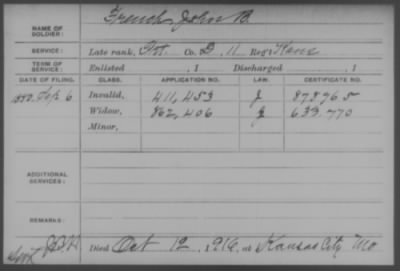 NAME OF SOLDIER: French, John B
SERVICE: Late rank, Pvt. Co. D, 11 Reg't Kans
TERM OF SERVICE: Enlisted , 1 Discharged , 1
DATE OF FILING. CLASS. APPLICATION NO. LAW. CERTIFICATE NO.
1880 Sep 6 Invalid, 411,453 J 878965
Widow, 862,406 J 633,770
Minor,
ADDITIONAL SERVICES:
REMARKS:
Died Oct 12, 1916, at Kansas City Mo